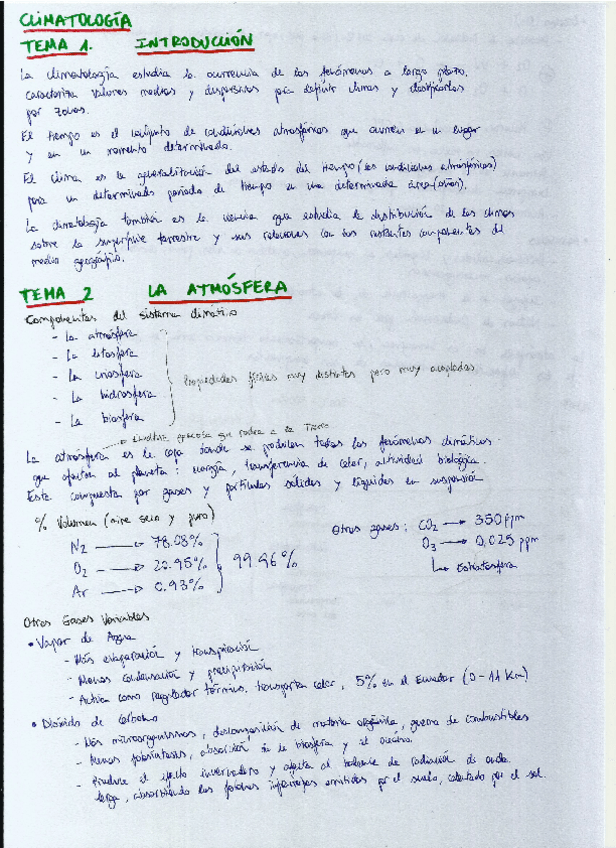 CLIMATOLOGÍA
TEMA 1. INTRODUCCIÓN
La climatología estudia la ocurrencia de los fenómenos a largo plazo,
caracteriza valores medios y dispersos para definir climas y clasificarlos
por zonas.
El tiempo es el conjunto de condiciones atmosféricas que ocurren en un lugar
y en un momento determinado.
El clima es la del estado del tiempo (las condiciones atmosféricas)
para un determinado período de tiempo en una determinada área (años).
La climatología también es la ciencia que estudia la distribución de los climas
sobre la superficie terrestre y sus relaciones con los restantes componentes del
medio geográfico.
TEMA 2 LA ATMÓSFERA
Componentes del sistema climático
- La atmósfera
- La litosfera
- La criosfera
- La hidrosfera
- La biosfera
Propiedades físicas muy distintas pero muy acopladas
Envoltura gaseosa que rodea a la Tierra
La atmósfera es la capa donde se producen todos los fenómenos climáticos
que afectan al planeta: energía, transferencia de calor, actividad biológica.
Está compuesta por gases y partículas sólidas y líquidas en suspensión
% Volumen (aire seco y puro)
N2 → 78.08%
O2 → 20.95%
Ar → 0.93%
99.96%
Otros gases: CO2 → 350 ppm
O3 → 0,025 ppm
↳ estratosfera
Otros Gases Variables
• Vapor de Agua
- Más evaporación y transpiración
- Menos condensación y precipitación
- Actúa como regulador térmico, transporta calor, 5% en el Ecuador (0-11 Km)
• Dióxido de Carbono
- Más microorganismos, descomposición de materia orgánica, quema de combustibles
- Menos fotosíntesis, absorción de la biosfera y el océano.
- Produce el efecto invernadero y afecta al balance de radiación de onda
larga, absorbiendo los fotones infrarrojos emitidos por el suelo, calentado por el sol.